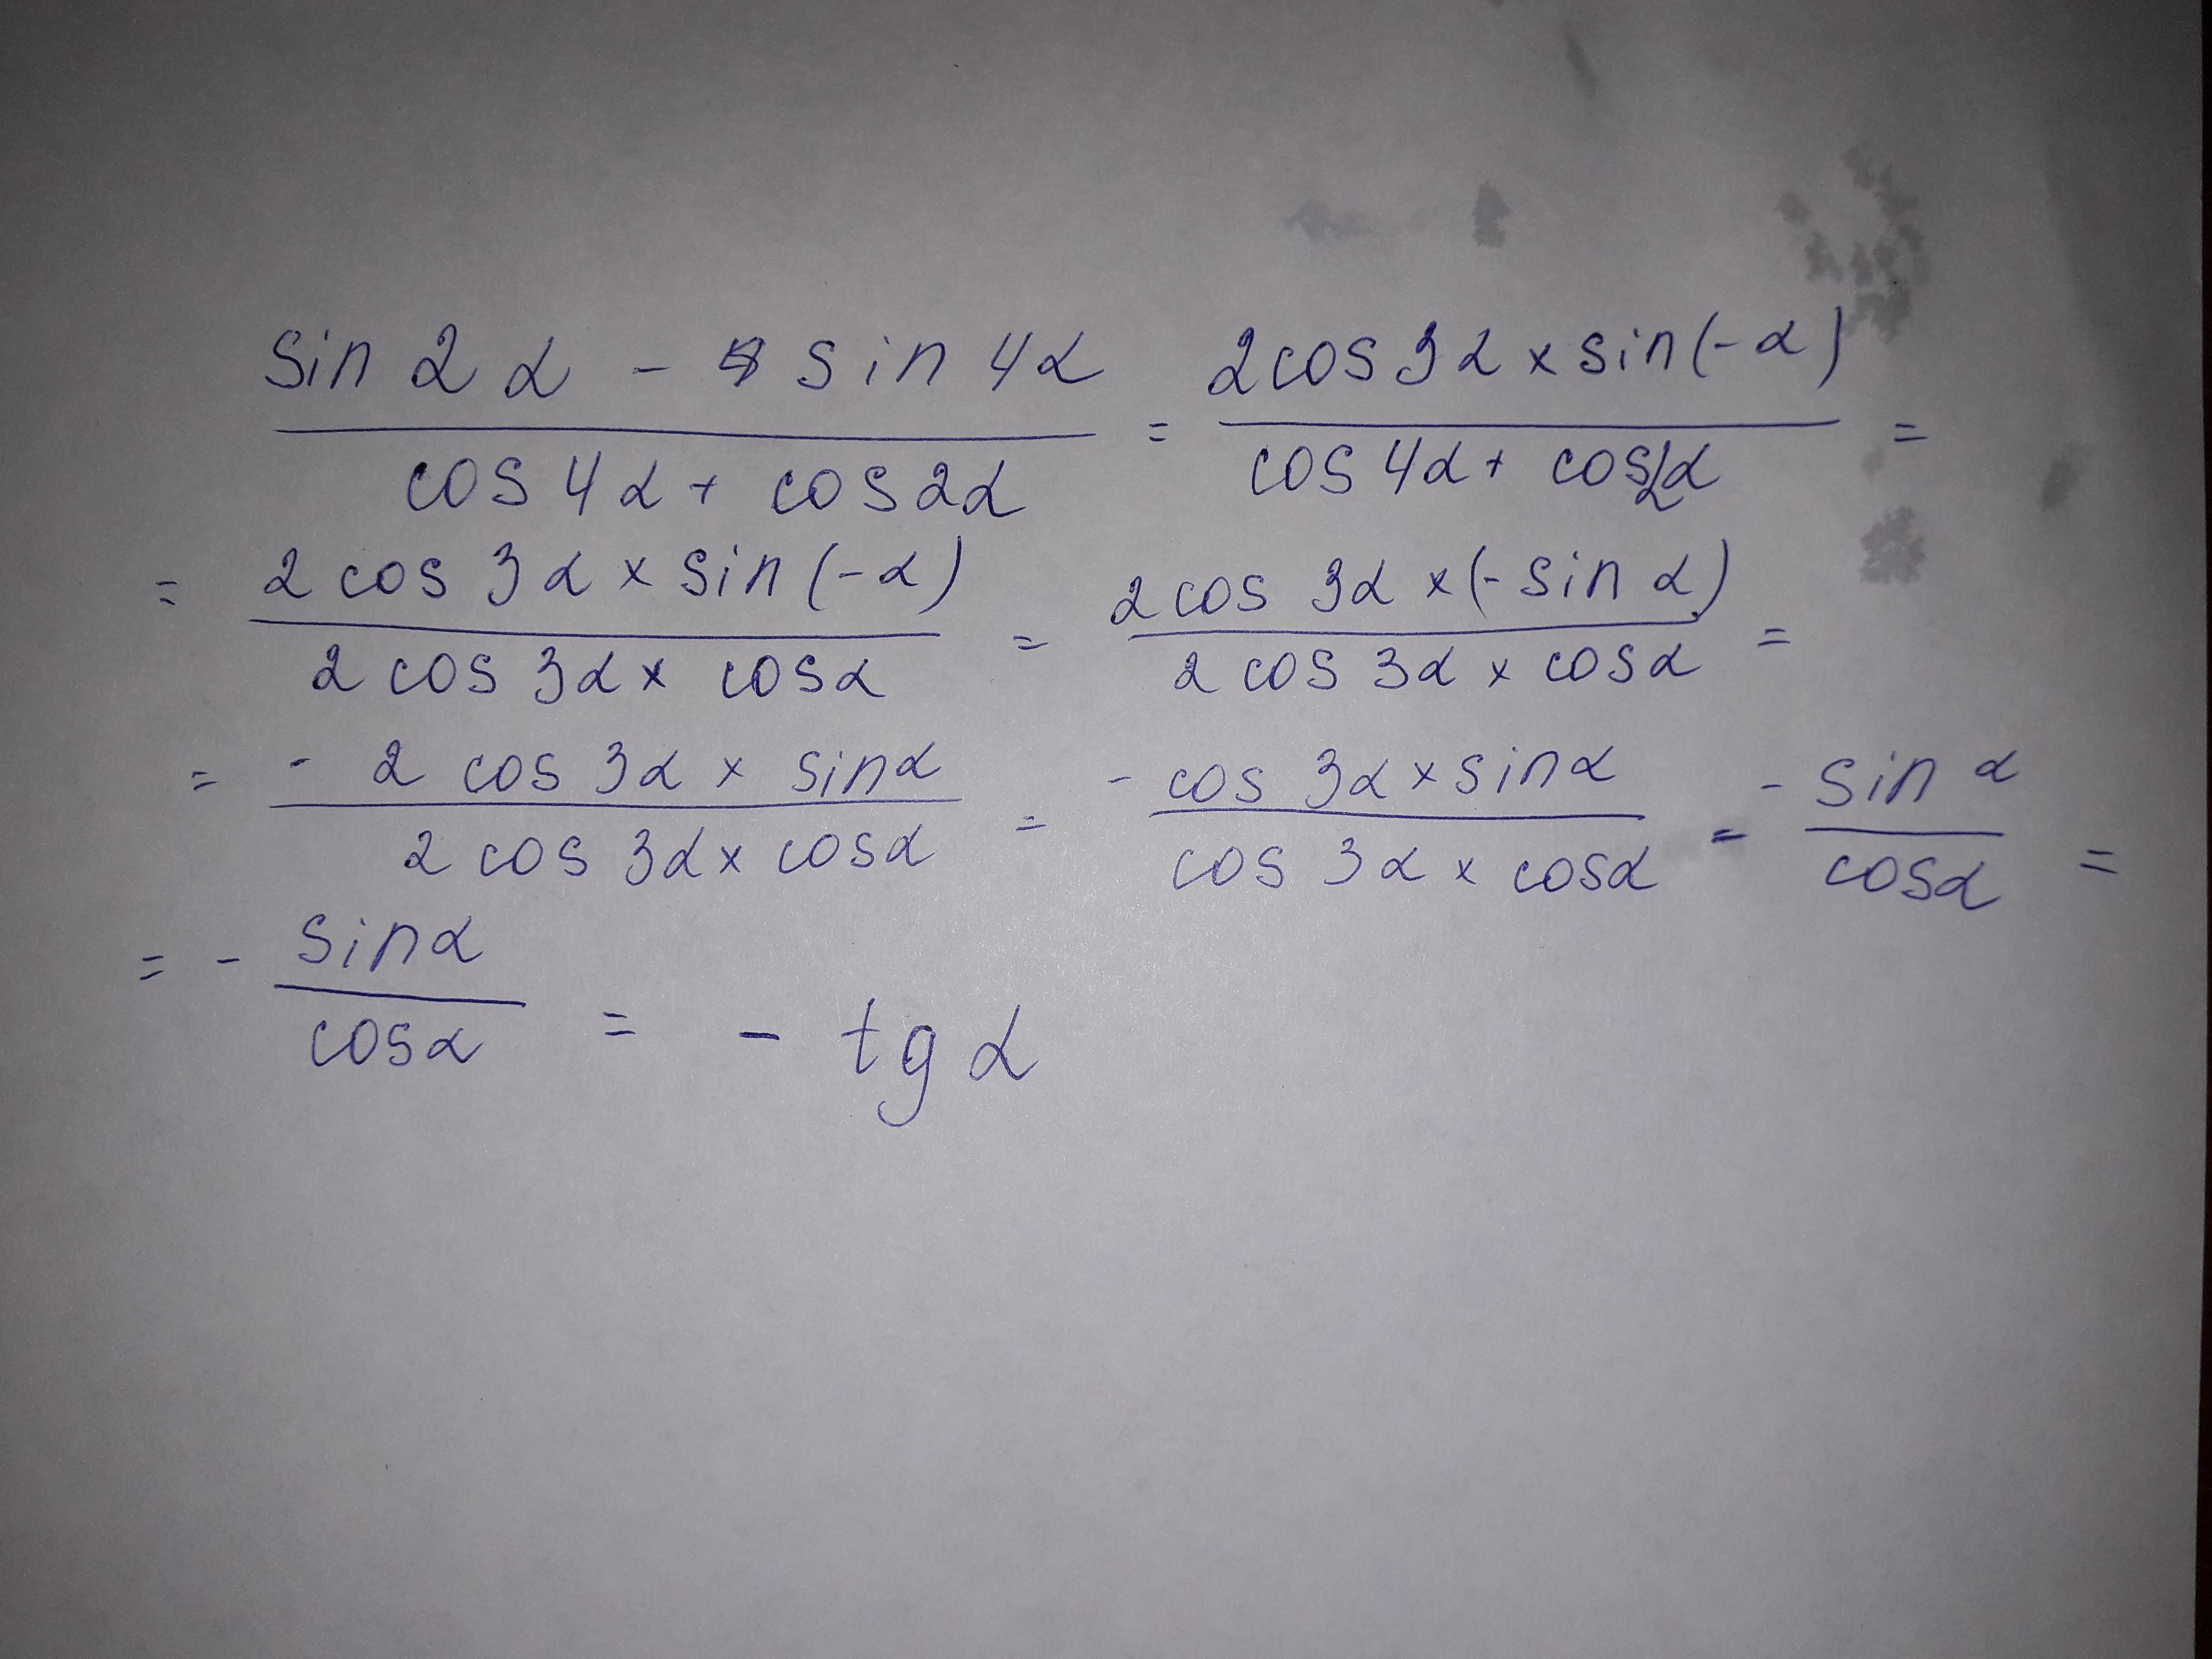 sin 2α - sin 4α / cos 4α + cos 2α = 2cos 3α × sin(-α) / cos 4α + cos 2α =
= 2 cos 3α × sin(-α) / 2 cos 3α × cosα = 2cos 3α × (-sin α) / 2 cos 3α × cosα =
= - 2 cos 3α × sinα / 2 cos 3α × cosα = - cos 3α × sinα / cos 3α × cosα = - sin α / cosα =
= - sinα / cosα = - tg α